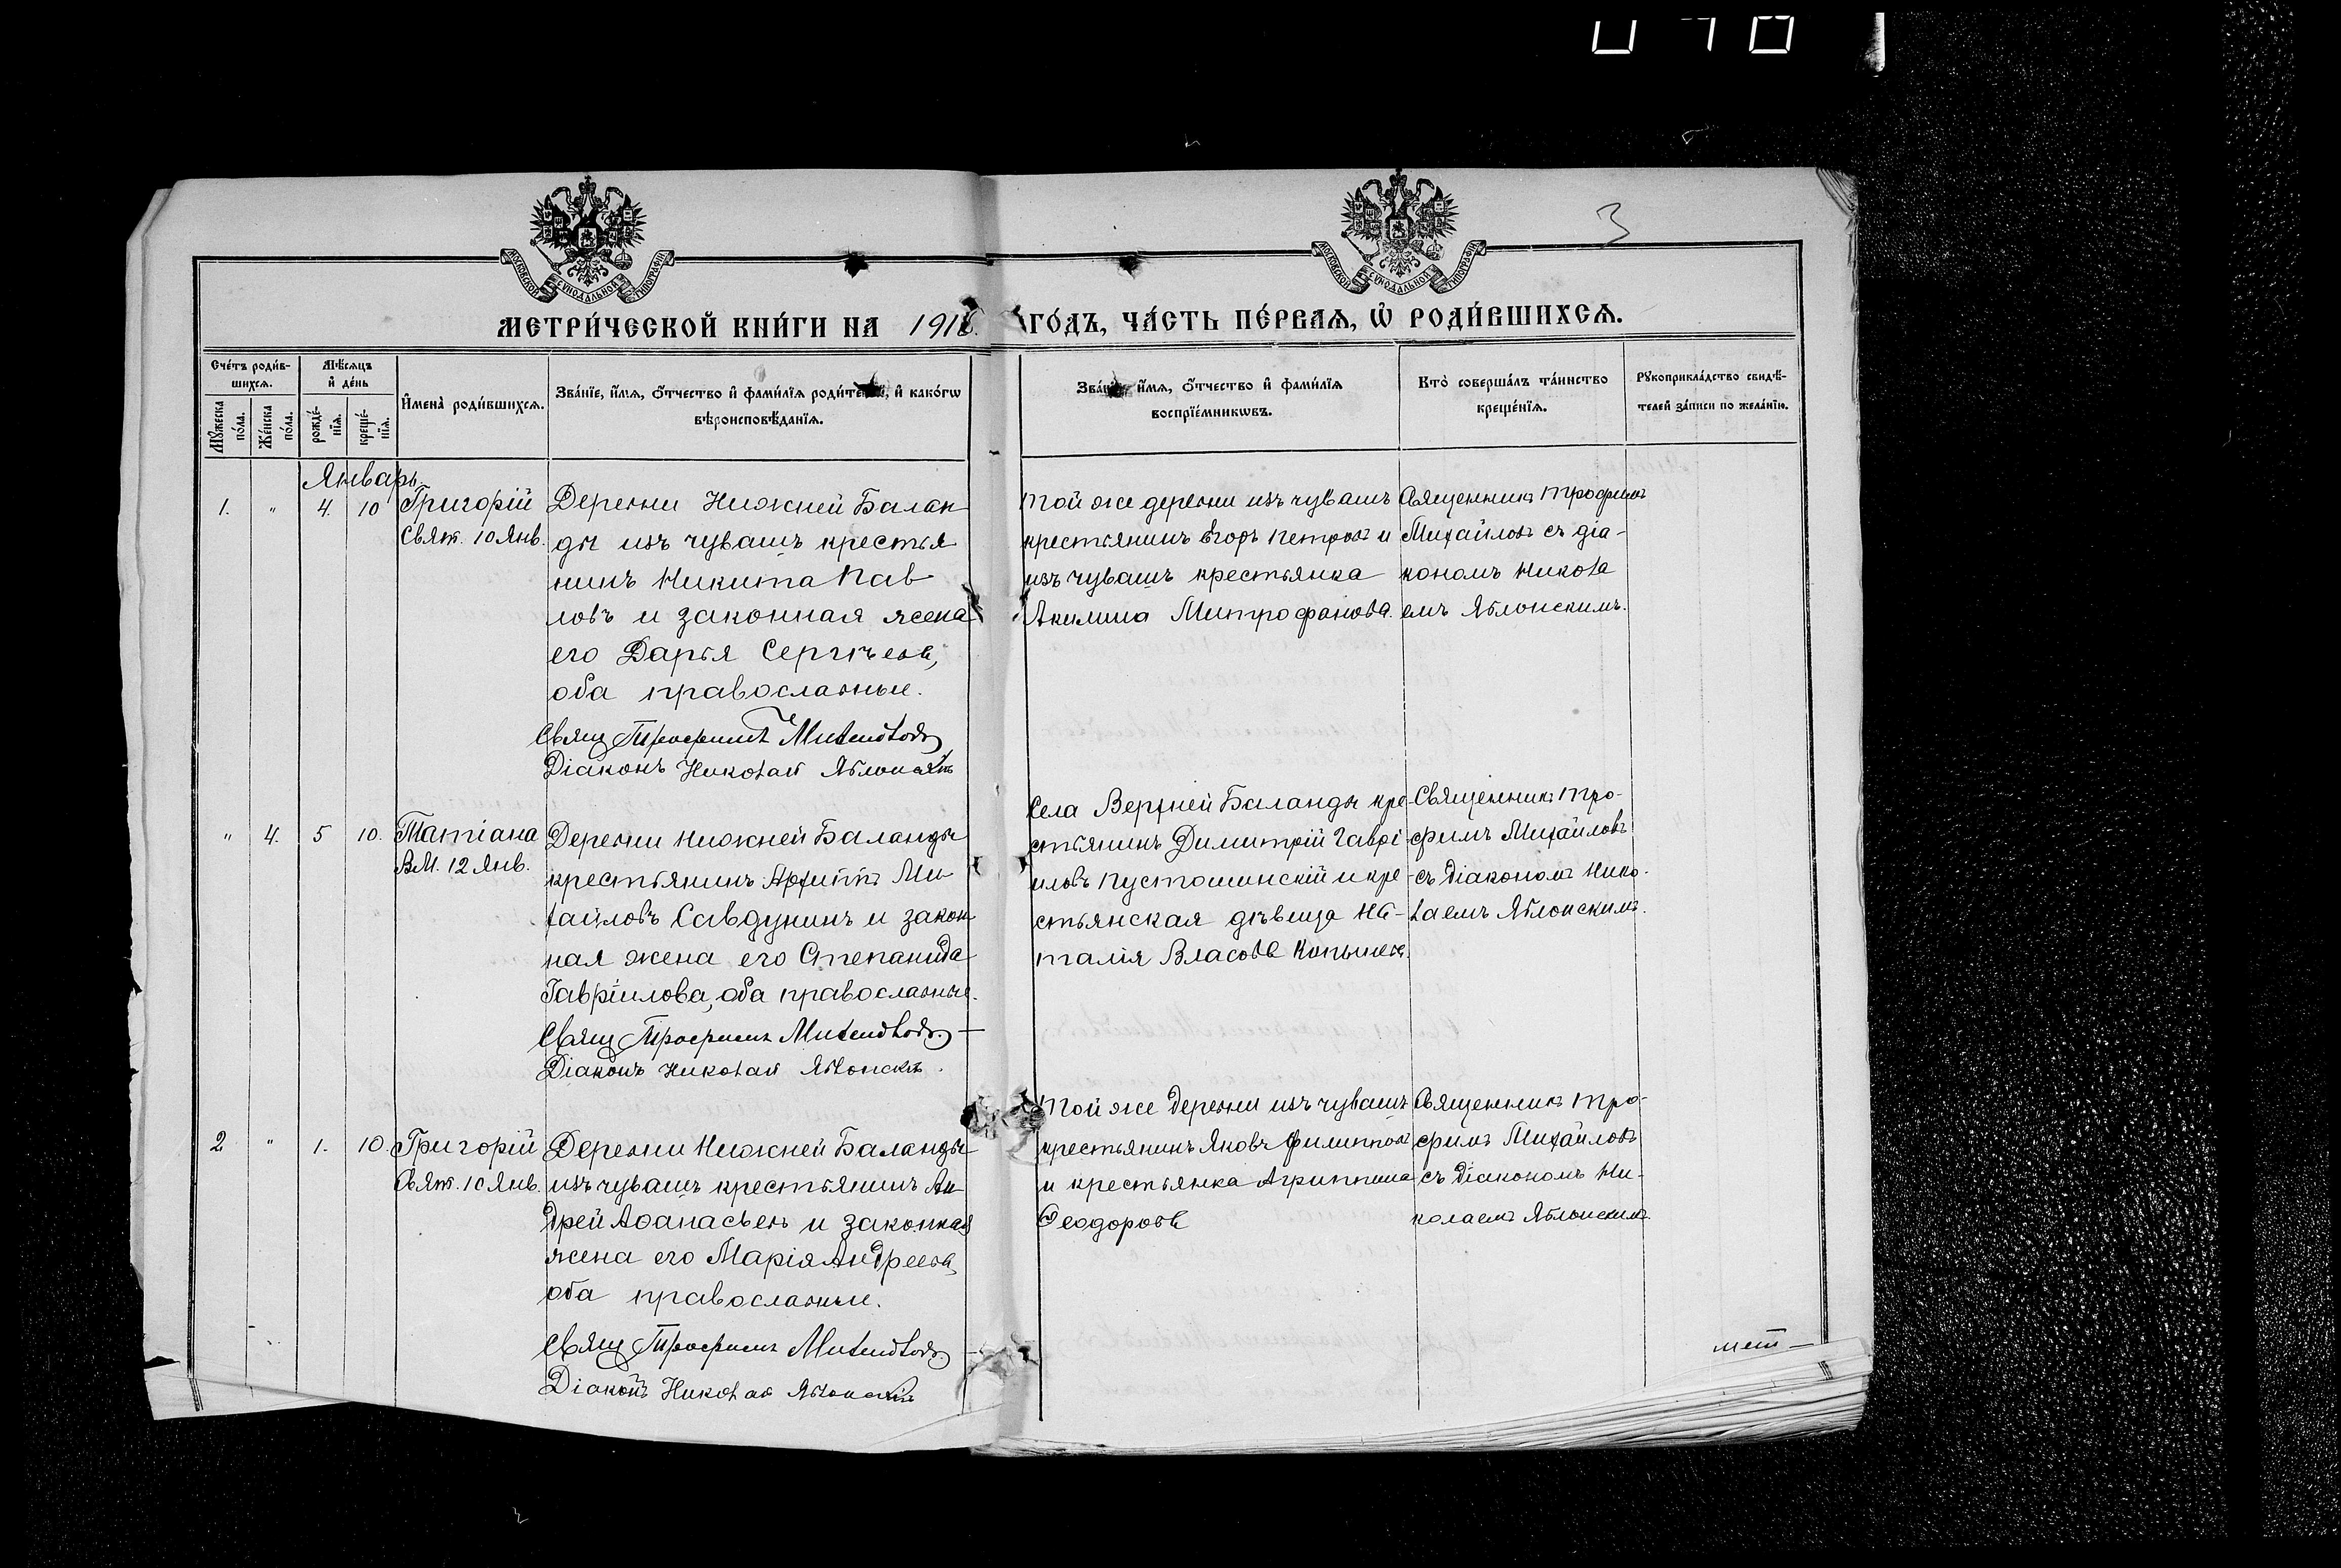 3
МОСКОВСКОЙ СѴНОДАЛЬНОЙ ТИПОГРАФІИ
МОСКОВСКОЙ СѴНОДАЛЬНОЙ ТИПОГРАФІИ
МЕТРИ́ЧЕСКОЙ КНИ́ГИ НА 191 ГО́ДЪ, ЧА́СТЬ ПЕ́РВАѦ, Ѡ҆ РОДИ́ВШИХСѦ.
Сче́тъ роди́в-
шихсѧ.
Мꙋ́жеска по́ла.
Же́нска по́ла.
Мѣ́сѧцъ
и҆ де́нь
рожде́-
нїѧ.
креще́-
нїѧ.
И҆мена̀ роди́вшихсѧ.
Зва́нїе, и҆́мѧ, ѻ҆́тчество и҆ фами́лїѧ роди́телей, и҆ како́гѡ
вѣроисповѣ́данїѧ.
Зва́нїе, и҆́мѧ, ѻ҆́тчество и҆ фами́лїѧ
воспрїе́мникѡвъ.
Кто̀ соверша́лъ та́инство
креще́нїѧ.
Рꙋкоприкла́дство свидѣ́-
телей за́писи по жела́нїю.
Январь.
1. " 4. 10 Григорій
Свят. 10 Янв.
Деревни Нижней Балан
ды изъ чувашъ крестья
нинъ Никита Пав
ловъ и законная жена
его Дарья Сергѣева,
оба православные.
Свящ Трофимъ Михайловъ
Діаконъ Николай Яблонскій
Той же деревни изъ чувашъ
крестьянинъ Егоръ Петровъ и
изъ чувашъ крестьянка
Акилина Митрофанова.
Священникъ Трофимъ
Михайловъ съ діа-
кономъ Никола
емъ Яблонскимъ.
" 4. 5 10. Татіана
ВМ. 12 Янв.
Деревни Нижней Баланды
крестьянинъ Архиппъ Ми
хайловъ Савдунинъ и закон
ная жена его Степанида
Гавріилова, оба православные.
Свящ Трофимъ Михайловъ
Діаконъ Николай Яблонскій.
Села Верхней Баланды кре-
стьянинъ Димитрій Гаврі
иловъ Пустошинскій и кре-
стьянская дѣвица На-
талія Власова
Священникъ Тро-
фимъ Михайловъ
съ Діакономъ Нико-
лаемъ Яблонскимъ.
2 " 1. 10. Григорій
Свят. 10 Янв.
Деревни Нижней Баланды
изъ чувашъ крестьянинъ Ан
дрей Аѳанасьевъ и законная
жена его Марія Андреева,
оба православные.
Свящ Трофимъ Михайловъ
Діаконъ Николай Яблонскій
Той же деревни изъ чувашъ
крестьянинъ Яковъ Филипповъ
и крестьянка Агриппина
Ѳеодорова
Священникъ Тро-
фимъ Михайловъ
съ Діакономъ Ни-
колаемъ Яблонскимъ.
мет—